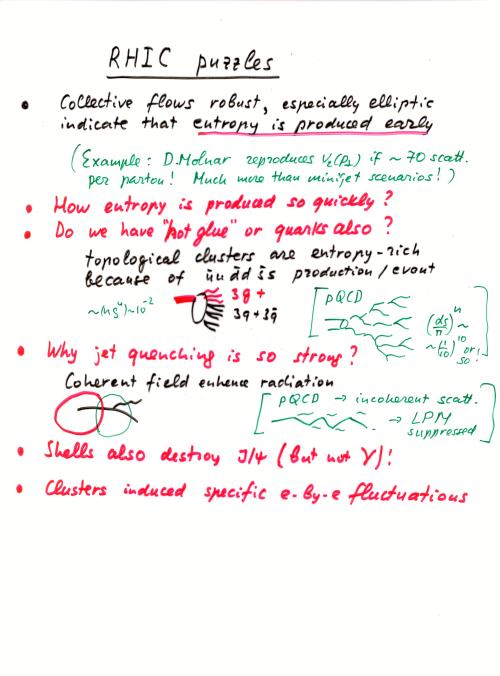 RHIC puzzles
• Collective flows robust, especially elliptic
indicate that entropy is produced early
(Example: D. Molnar reproduces v₂(p₂) if ~ 70 scatt.
per parton! Much more than minijet scenarios!)
• How entropy is produced so quickly?
• Do we have "hot glue" or quarks also?
topological clusters are entropy-rich
because of ūu d̄d s̄s production/event
3g +
3q+3q̄
~10⁻²
[pQCD
(αs/π)ⁿ ~
or
so!]
• Why jet quenching is so strong?
Coherent field enhence radiation
[pQCD → incoherent scatt.
→ LPM
suppressed]
• Shells also destroy J/ψ (but not Υ)!
• Clusters induced specific e-by-e fluctuations